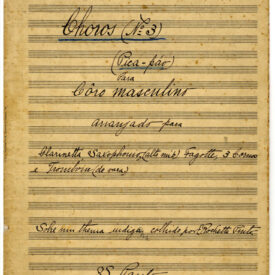 Choros (Nº 3)
(Pica-páo)
Para
Côro masculino
arranjado para
Clarinetta, Saxophone (alto mib) Fagotte, 3 Cornos
e Trombone (de vara)
Sobre um thema indigena, colhido por E. Rochette Pinto
S. Paulo